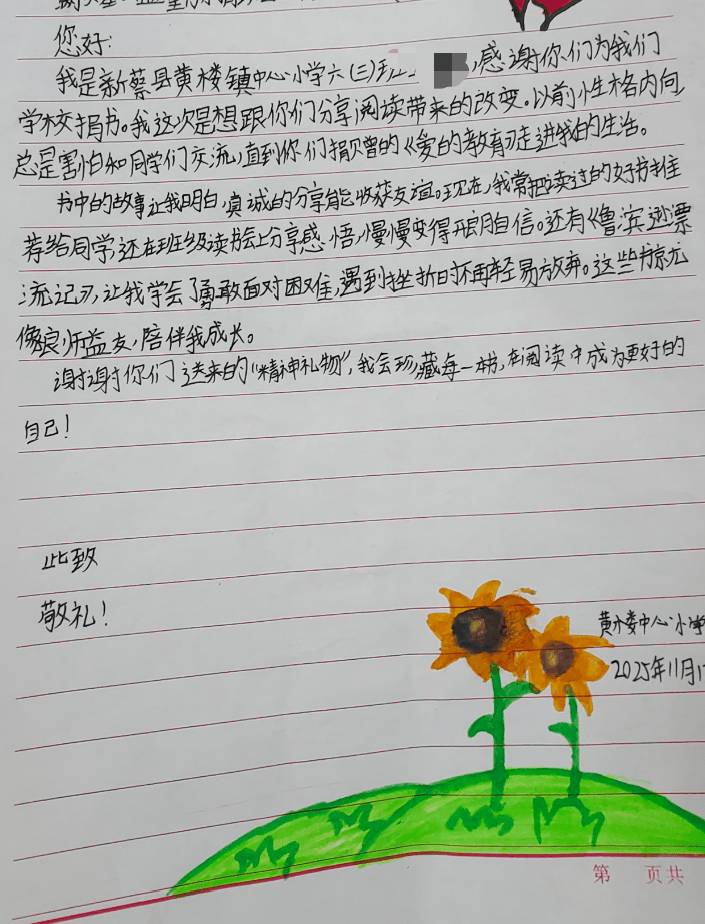 您好:
我是新蔡县黄楼镇中心小学六(三)班,感谢你们为我们
学校捐书。我这次是想跟你们分享阅读带来的改变。以前性格内向,
总是害怕和同学们交流,直到你们捐赠的《爱的教育》走进我的生活。
书中的故事让我明白,真诚的分享能收获友谊。现在,我常把读过的好书推
荐给同学,还在班级读书会上分享感悟,慢慢变得开朗自信。还有《鲁滨逊漂
流记》,让我学会了勇敢面对困难,遇到挫折时不再轻易放弃。这些书就
像良师益友,陪伴我成长。
谢谢你们送来的“精神礼物”,我会珍藏每一本书,在阅读中成为更好的
自己!
此致
敬礼!
黄楼中心小学
2025年11月1
第 页共